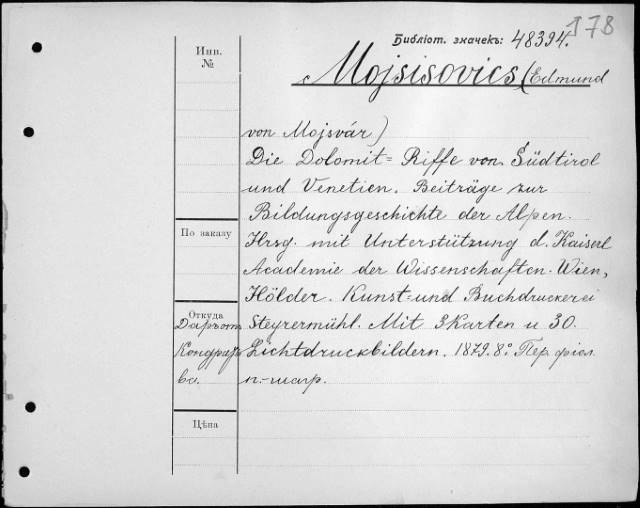 178
Библіот. значекъ: 48394.
Инв.
№
Mojsisovics (Edmund
von Mojsvár)
Die Dolomit= Riffe von Südtirol
und Venetien. Beiträge zur
Bildungsgeschichte der Alpen.
По заказу
Hrsg. mit Unterstützung d. Kaiserl
Academie der Wissenschaften. Wien,
Hölder. Kunst= und Buchdruckerei
Откуда
Steyrermühl. Mit 3 Karten u 30.
Lichtdruckbildern. 1879. 8.° Пер
Цѣна